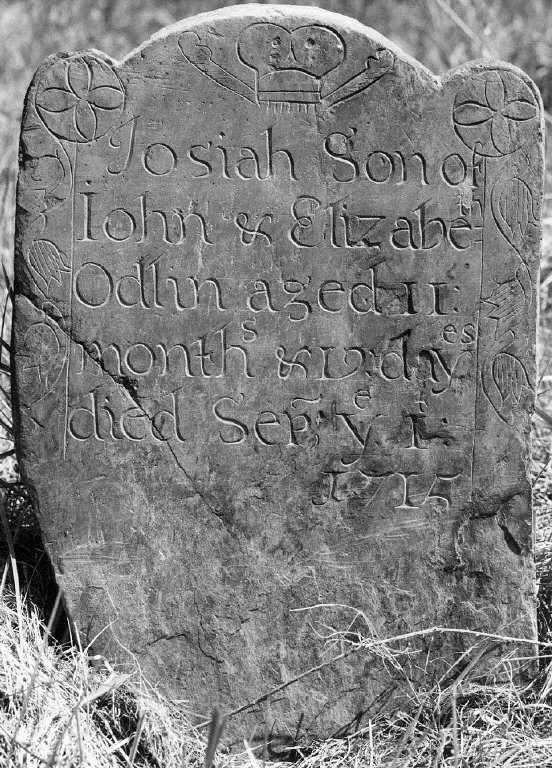 Iosiah Son of
Iohn & Elizabeth
Odlin aged 11:
months & 15: dyes
died Sep:r ye 1t
1715